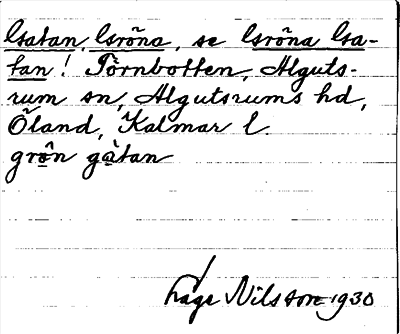 Gatan, Gröna, se Gröna Ga-
tan! Törnbotten, Alguts-
rum sn, Algutsrums hd,
Öland, Kalmar l.
grön gatan
Nilsson 1930